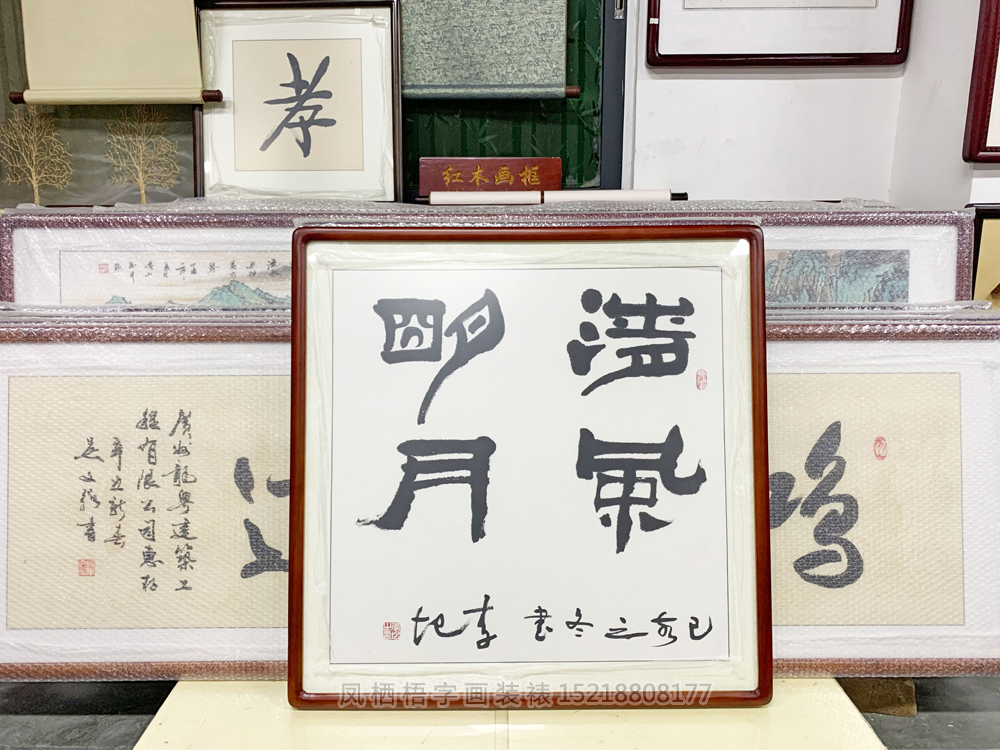 孝
红木画框
清風
明月
己亥之冬書
李
廣州龍粵建築工
程有限公司惠存
辛丑新春
吴文 書
凤栖梧字画装裱15218808177